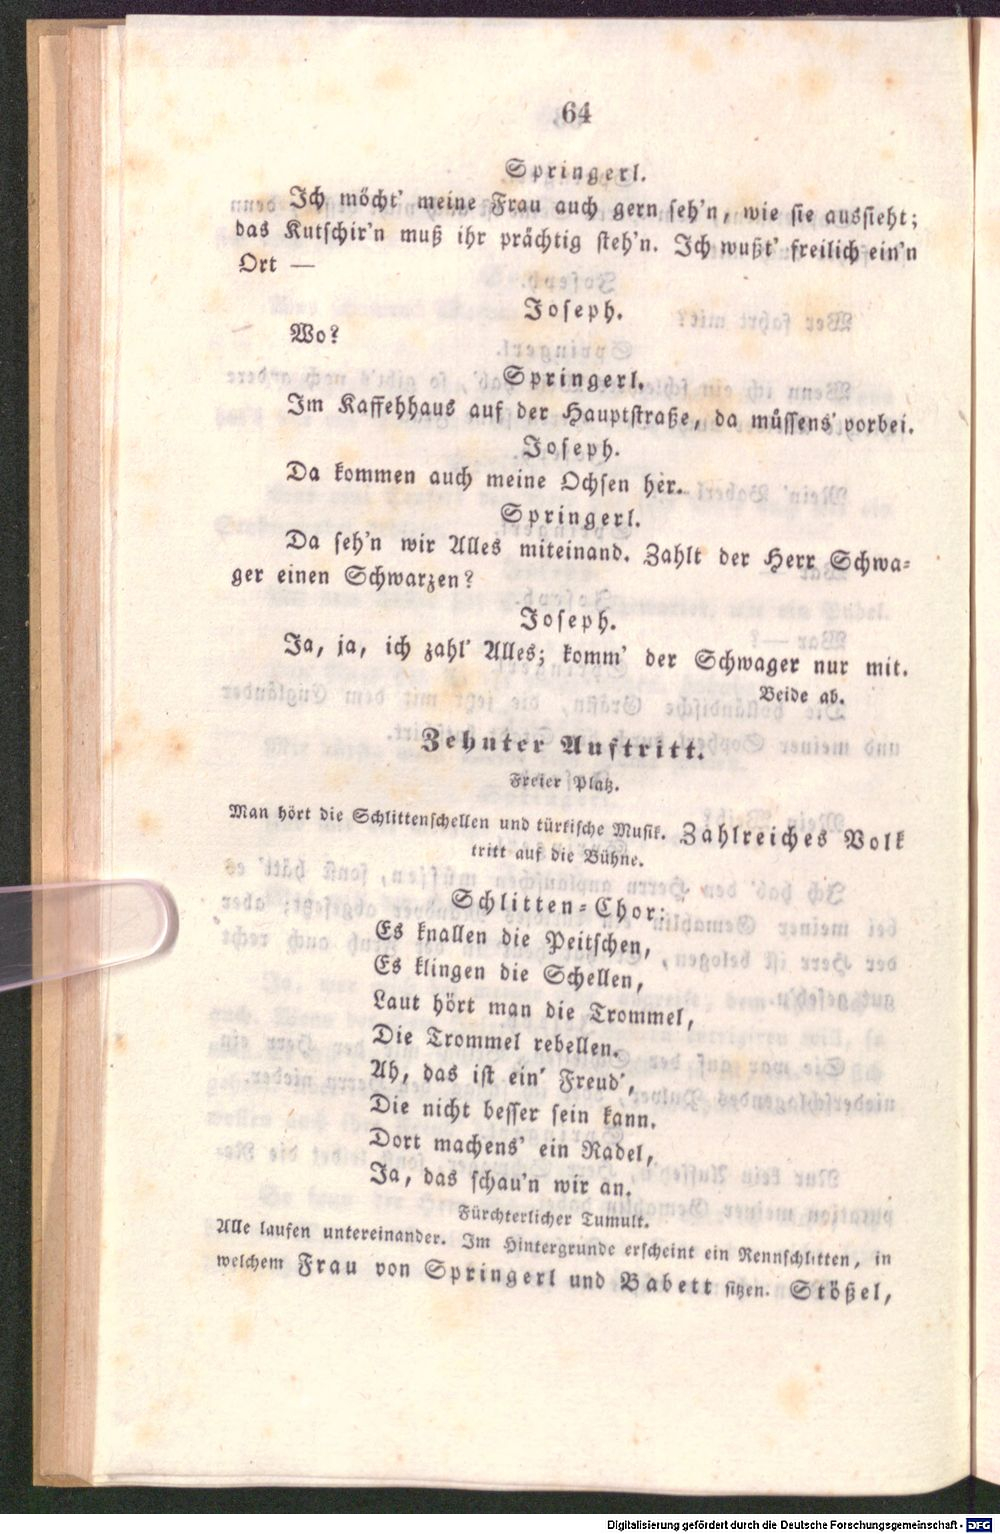 64
Springerl.
Ich möcht' meine Frau auch gern seh'n, wie sie aussieht;
das Kutschir'n muß ihr prächtig steh'n. Ich wußt' freilich ein'n
Ort —
Joseph.
Wo?
Springerl.
Im Kaffehhaus auf der Hauptstraße, da müssens' vorbei.
Joseph.
Da kommen auch meine Ochsen her.
Springerl.
Da seh'n wir Alles miteinand. Zahlt der Herr Schwa-
ger einen Schwarzen?
Joseph.
Ja, ja, ich zahl' Alles; komm' der Schwager nur mit.
Beide ab.
Zehnter Auftritt.
Freier Platz.
Man hört die Schlittenschellen und türkische Musik. Zahlreiches Volk
tritt auf die Bühne.
Schlitten-Chor:
Es knallen die Peitschen,
Es klingen die Schellen,
Laut hört man die Trommel,
Die Trommel rebellen.
Ah, das ist ein' Freud',
Die nicht besser sein kann.
Dort machens' ein Radel,
Ja, das schau'n wir an.
Fürchterlicher Tumult.
Alle laufen untereinander. Im Hintergrunde erscheint ein Rennschlitten, in
welchem Frau von Springerl und Babett sitzen. Stößel,
Digitalisierung gefördert durch die Deutsche Forschungsgemeinschaft - DFG